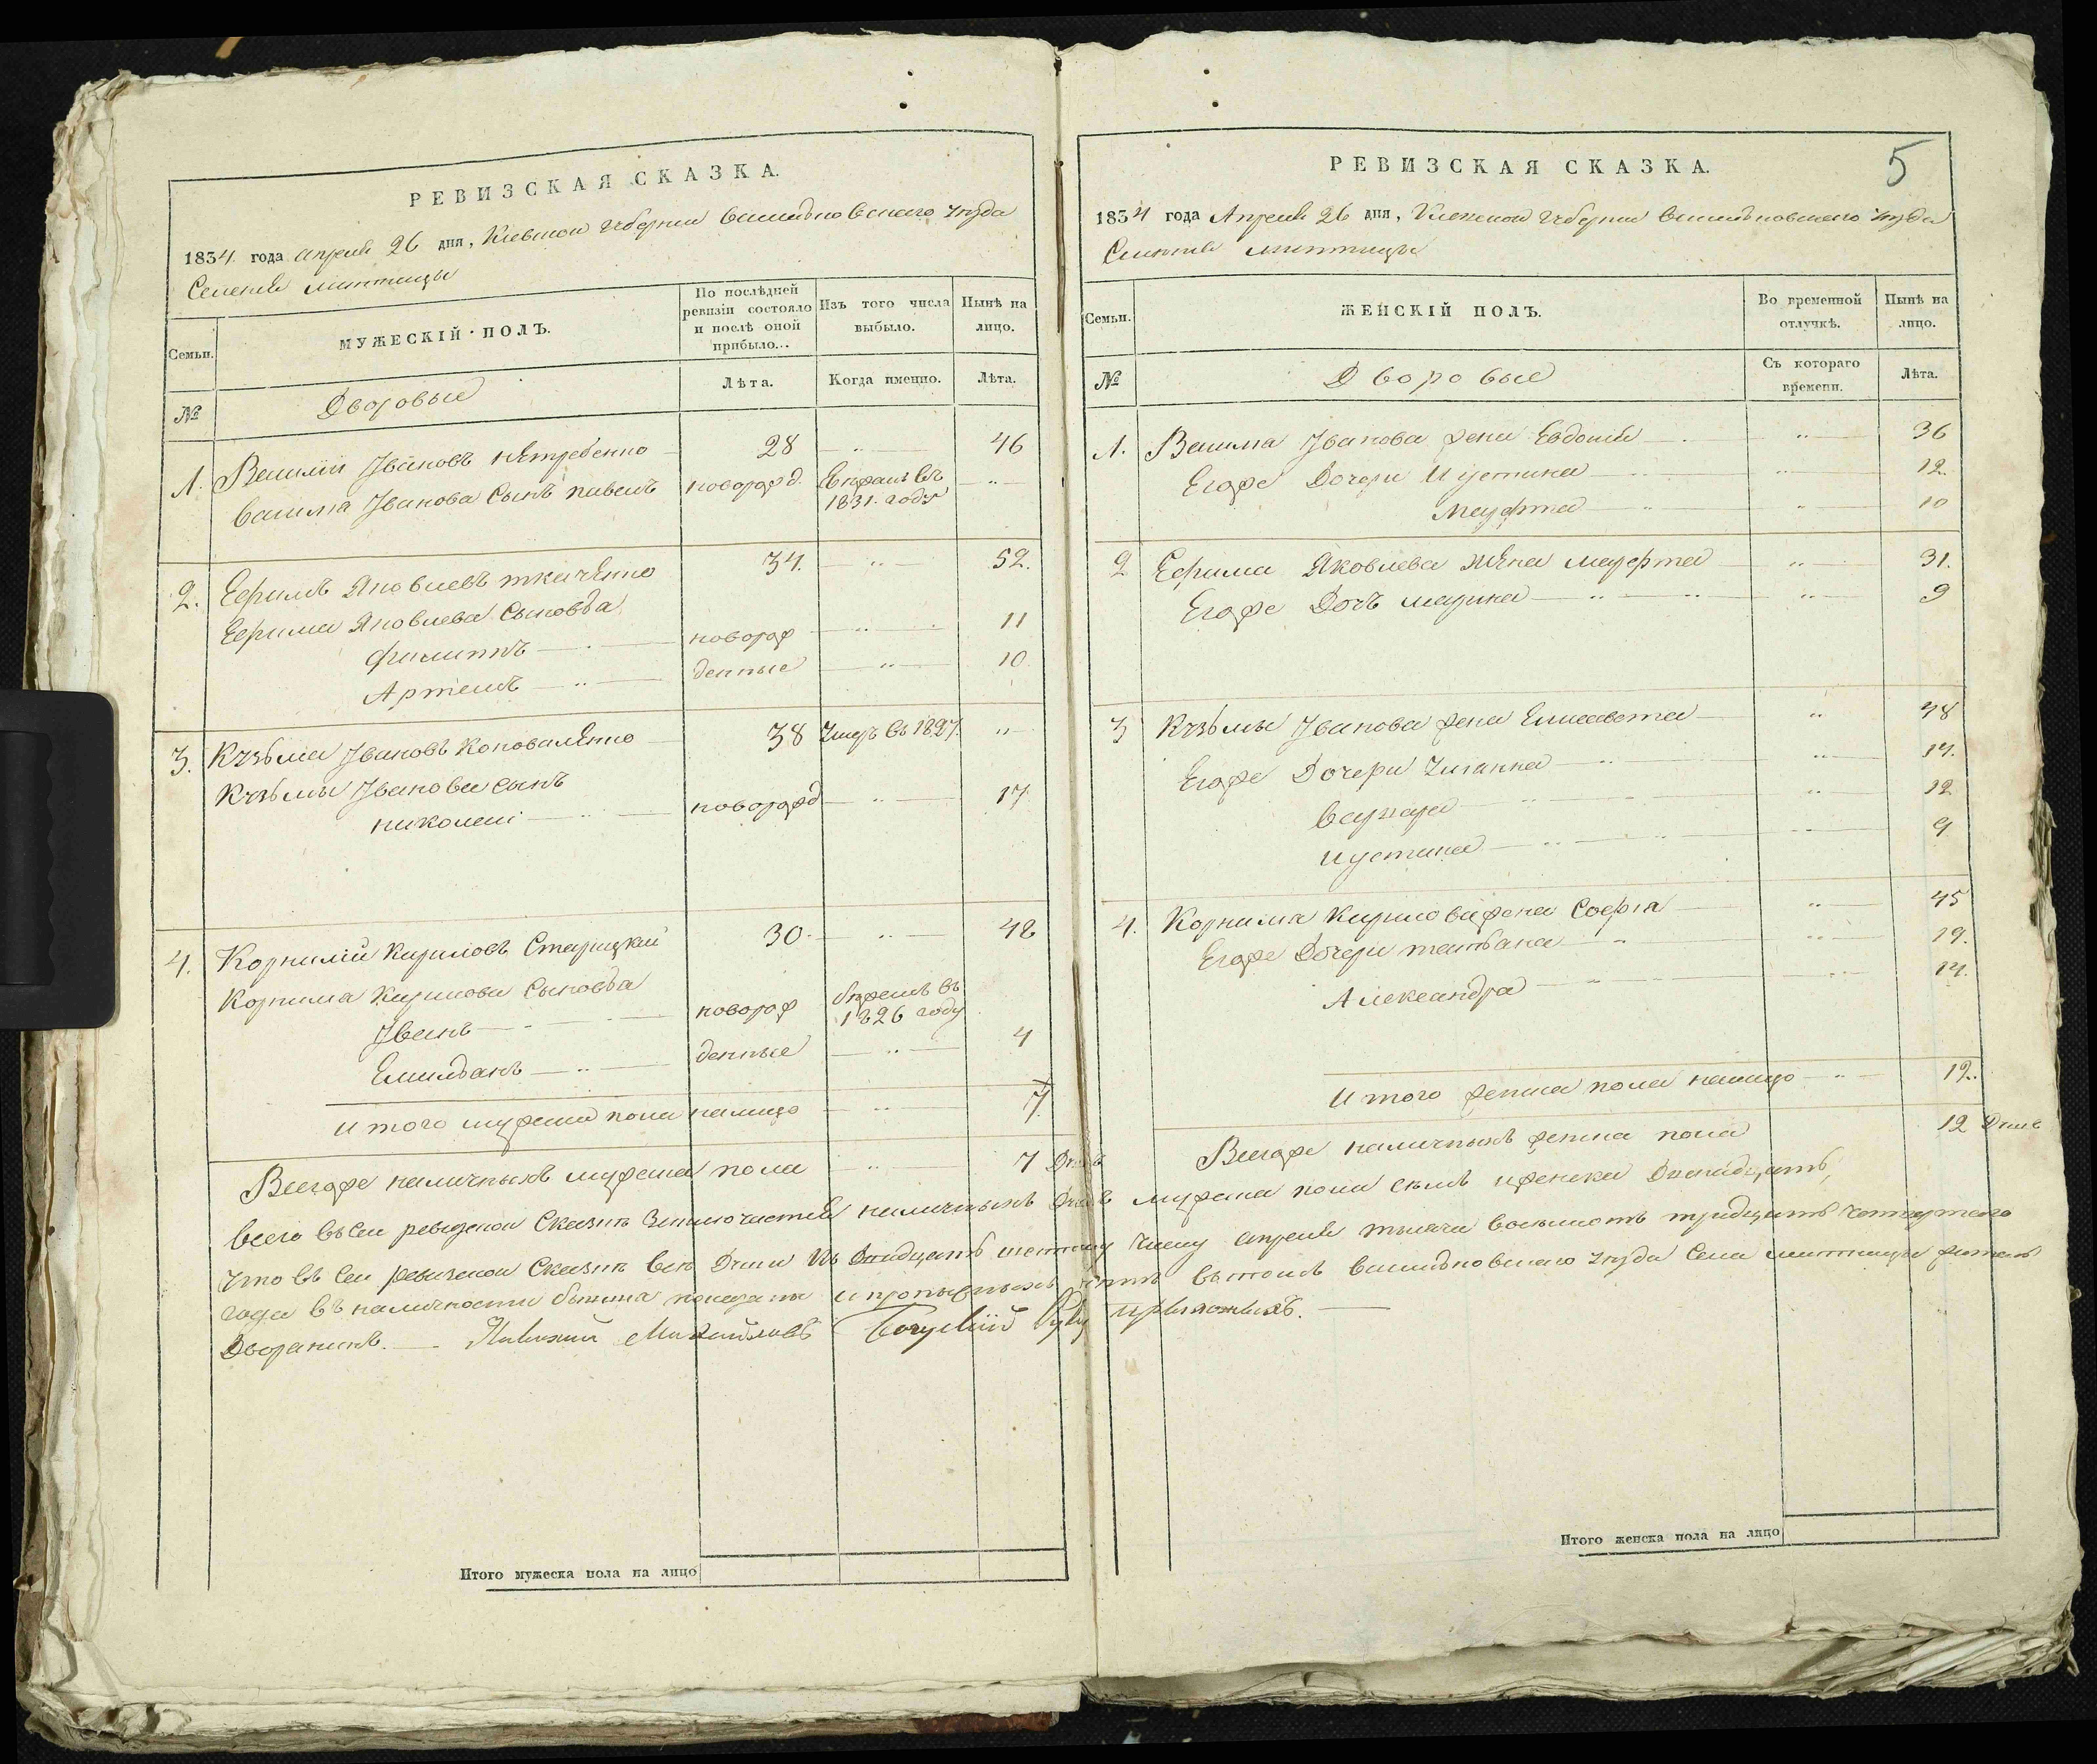 РЕВИЗСКАЯ СКАЗКА.
1834 года апреля 26 дня, Киевской губернии васильковского уезда
Селения миттницы
Семьи.
МУЖЕСКІЙ ПОЛЪ.
По послѣдней ревизіи состояло и послѣ оной прибыло...
Изъ того числа выбыло.
Нынѣ на лицо.
№
Дворовые
Лѣта.
Когда именно.
Лѣта.
1. Василій Ивановъ нетребенко 28 46
василия Иванова сынъ павелъ новорожд. 1831. году
2. Ефимъ Яковлевъ ткаченко 34. 52.
Ефима Яковлева Сыновья
филиппъ новорож 11
Артемъ денные 10
3. Кузьма Ивановъ Коноваленко 38 Умеръ въ 1827. "
Кузьмы Иванова сынъ
николай новорожд 17
4. Корнилій Кириловъ Старицкий 30 48
Корнилія Кирилова Сыновья
Иванъ новорож въ 1826 году
Емильянъ денные 4
Итого мужеска пола налицо 7
Всегоже наличныхъ мужеска пола 7 Душъ
РЕВИЗСКАЯ СКАЗКА. 5
1834 года Апреля 26 дня, Киевской губернии васильковского уезда
Селения миттницы
Семьи.
ЖЕНСКІЙ ПОЛЪ.
Во временной отлучкѣ.
Нынѣ на лицо.
№
Дворовые
Съ котораго времени.
Лѣта.
1. Василия Иванова жена Евдокия 36
Егоже Дочери Иустина 12
Марфта 10
2 Ефима Яковлева жена марфта 31.
Егоже Дочь марина 9
3 Кузьмы Иванова жена Елисавета 48
Егоже Дочери Улианна 14.
варвара 12
иустина 9
4. Корнилия Кирилова жена Софія 45
Егоже Дочери татьяна 19.
Александра 14.
Итого женска пола налицо 12.
Всегоже наличныхъ женска пола 12 Душъ
всего въ сей ревизской Сказкѣ наличныхъ Душъ мужеска пола семь и женска Двенадцать,
что въ сей ревизской Сказкѣ всѣ Души къ Двадцать шестому числу апреля тысяча восемьсотъ тридцать четвертого
года въ наличности бывшия показаны и прописныхъ нѣтъ въ томъ васильковского уезда Села миттницы
Дворянинъ. Михайловъ Руку приложилъ.
Итого мужеска пола на лицо
Итого женска пола на лицо